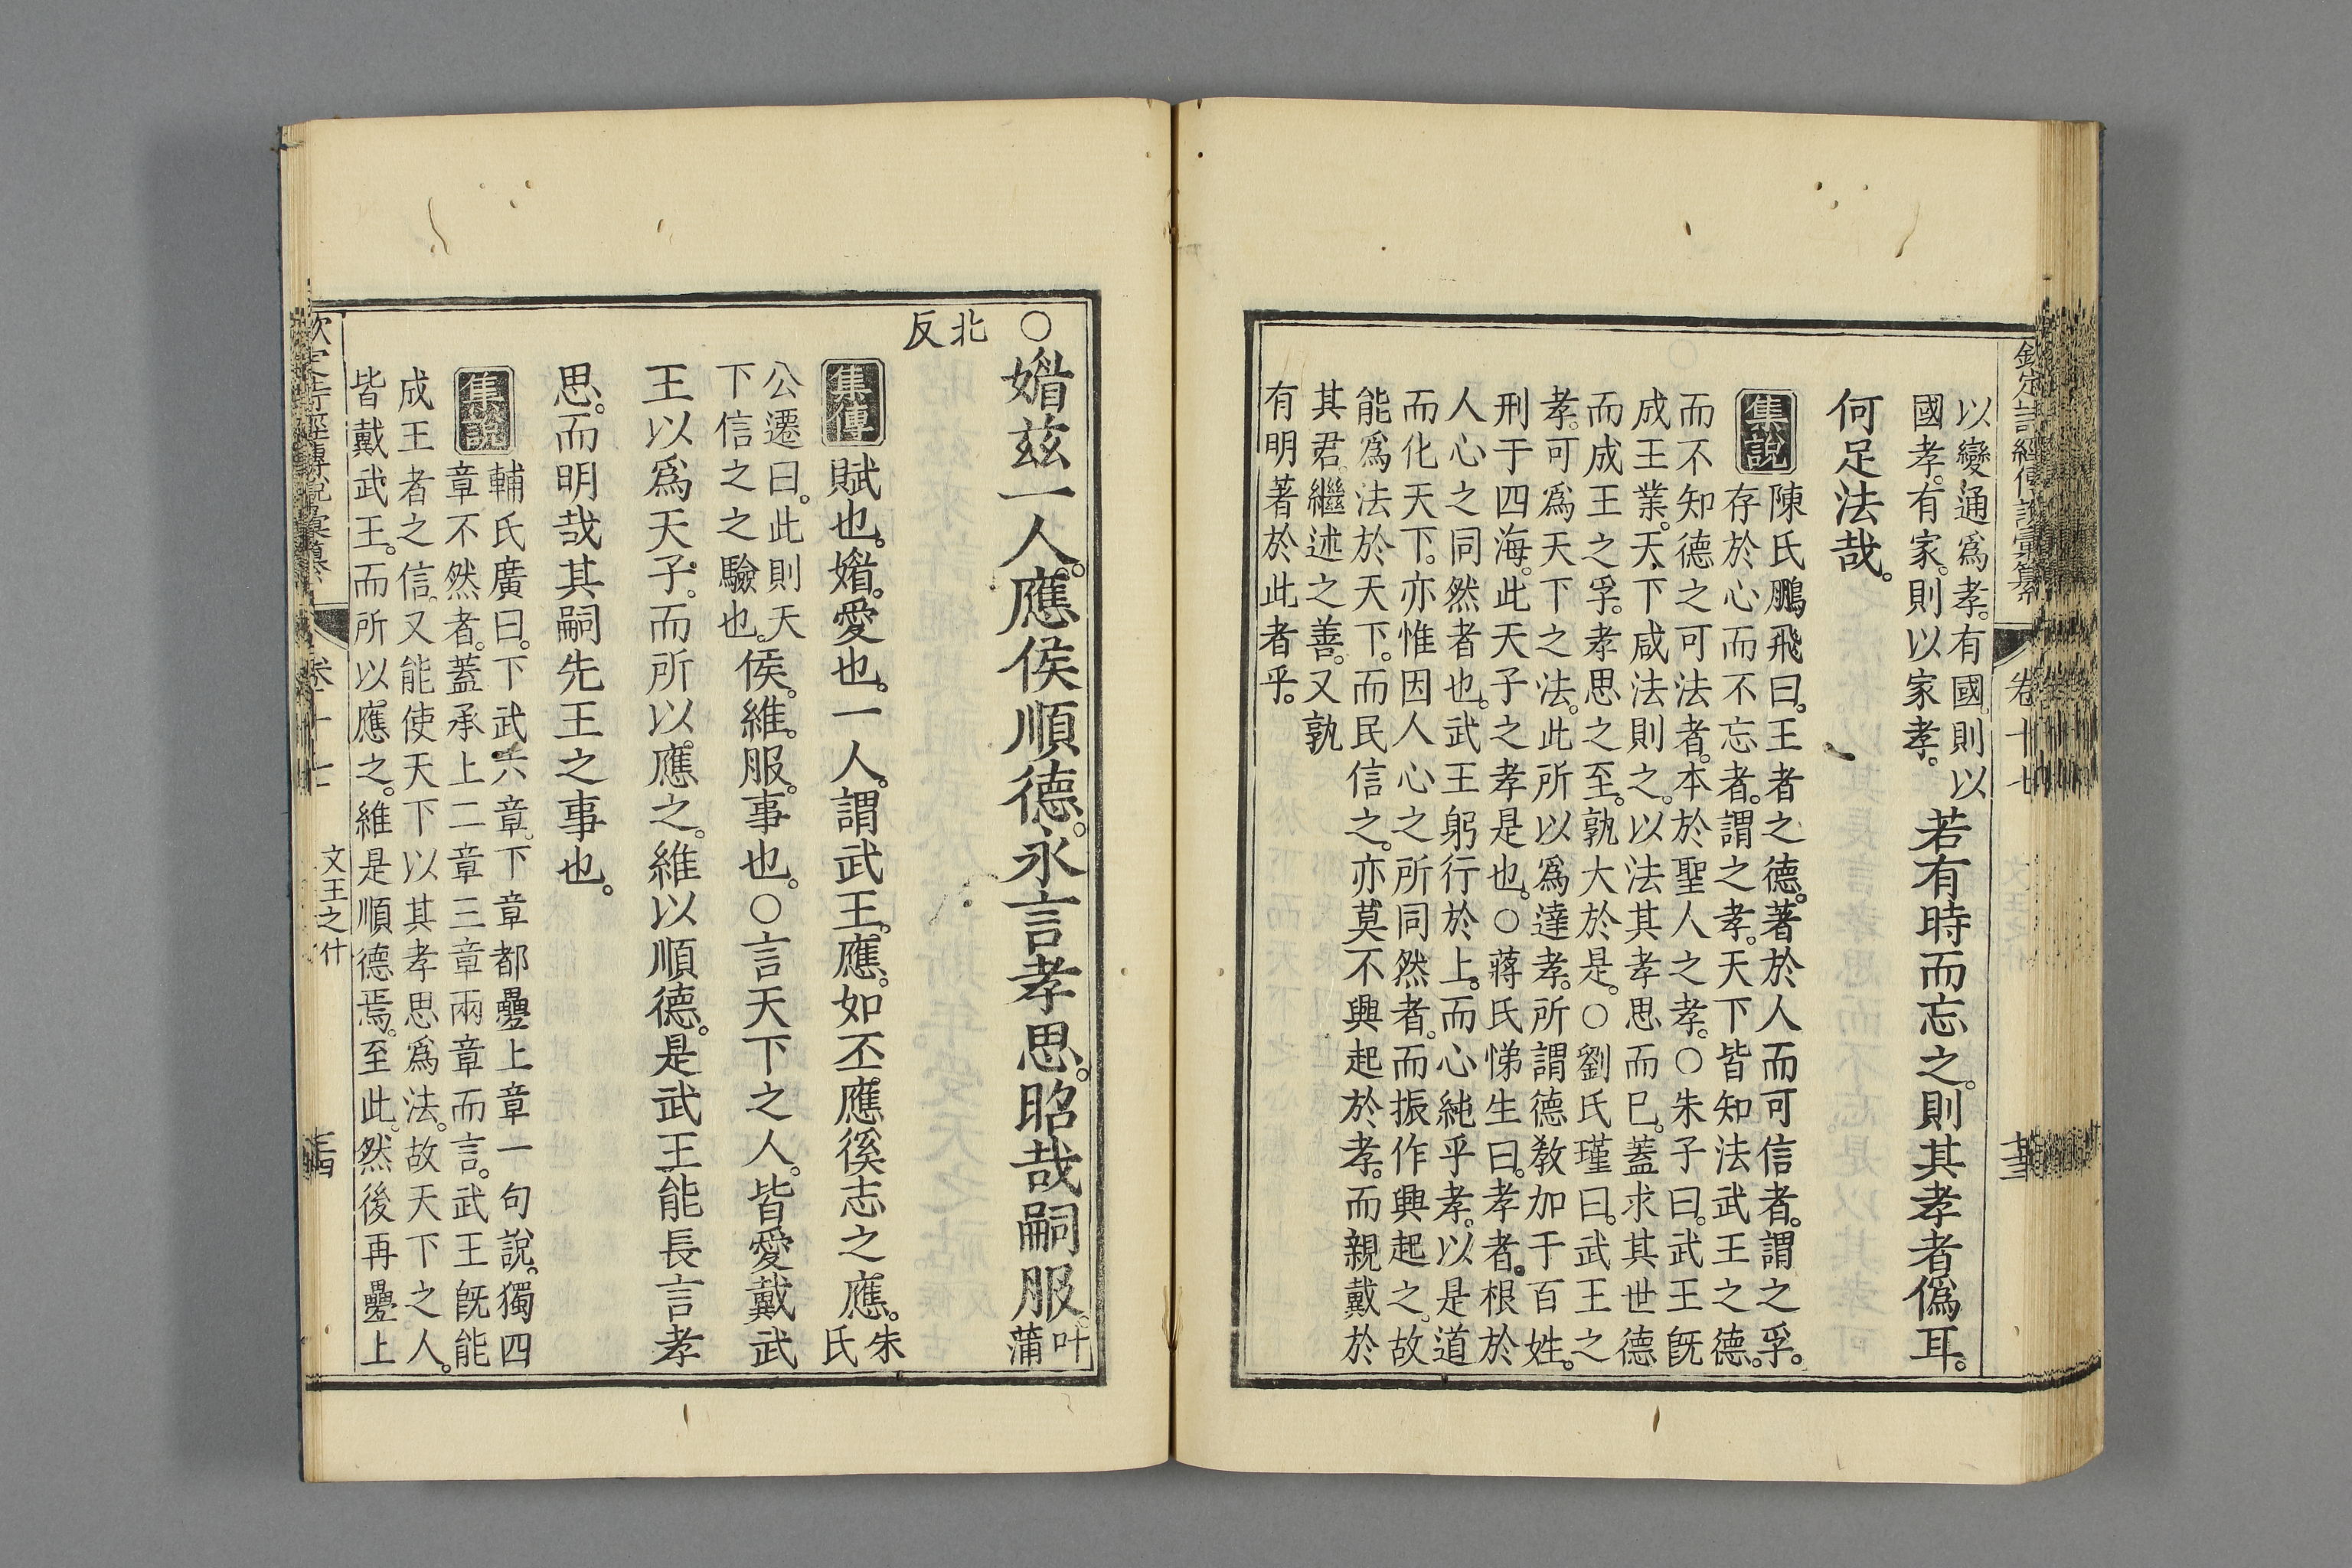 欽定詩經傳說彙纂 卷十七
以變通爲孝。有國。則以
國孝。有家。則以家孝。
若有時而忘之。則其孝者僞耳。
何足法哉。
集說
陳氏鵬飛曰。王者之德。著於人而可信者。謂之孚。
存於心而不忘者。謂之孝。天下皆知法武王之德。
而不知德之可法者。本於聖人之孝。○朱子曰。武王旣
成王業。天下咸法則之。以法其孝思而已。蓋求其世德
而成王之孚。孝思之至。孰大於是。○劉氏瑾曰。武王之
孝。可爲天下之法。此所以爲達孝。所謂德敎加于百姓。
刑于四海。此天子之孝是也。○蔣氏悌生曰。孝者。根於
人心之同然者也。武王躬行於上。而心純乎孝。以是道
而化天下。亦惟因人心之所同然者。而振作興起之。故
能爲法於天下。而民信之。亦莫不興起於孝。而親戴於
其君。繼述之善。又孰
有明著於此者乎。
○媚茲一人。應侯順德。永言孝思。昭哉嗣服。叶蒲
北反
集傳
賦也。媚。愛也。一人。謂武王。應。如丕應徯志之應。朱氏
公遷曰。此則天
下信之之驗也。
侯。維。服。事也。○言天下之人。皆愛戴武
王以爲天子。而所以應之。維以順德。是武王能長言孝
思。而明哉其嗣先王之事也。
集說
輔氏廣曰。下武六章。下章都疊上章一句說。獨四
章不然者。蓋承上二章三章兩章而言。武王旣能
成王者之信。又能使天下以其孝思爲法。故天下之人。
皆戴武王。而所以應之。維是順德焉。至此。然後再疊上
欽定詩經傳說彙纂 卷十七 文王之什